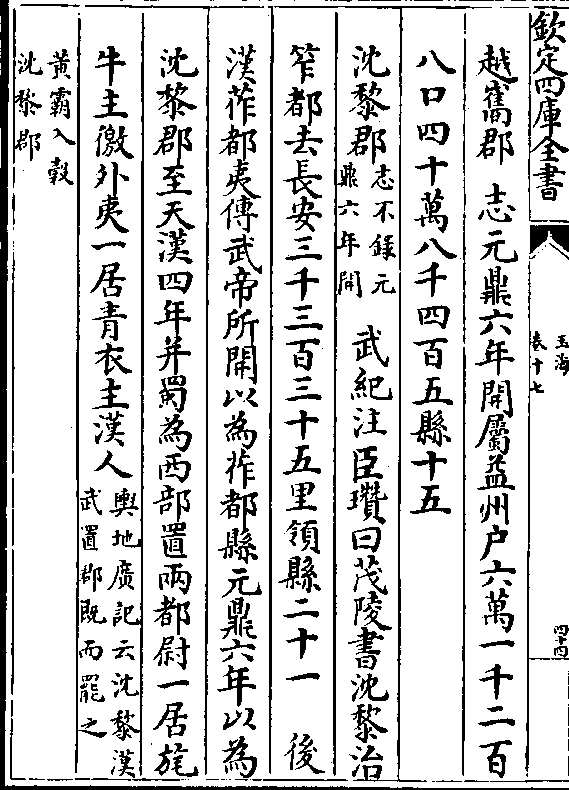 欽定四庫全書
玉海
卷十七
四十四
越嶲郡　志元鼎六年開屬益州户六萬一千二百
八口四十萬八千四百五縣十五
沈黎郡志不録元鼎六年開　武紀注臣瓚曰茂陵書沈黎治
笮都去長安三千三百三十五里領縣二十一　後
漢莋都夷傳武帝所開以為莋都縣元鼎六年以為
沈黎郡至天漢四年并蜀為西部置兩都尉一居旄
牛主徼外夷一居青衣主漢人輿地廣記云沈黎漢武置郡既而罷之
黄霸入穀沈黎郡